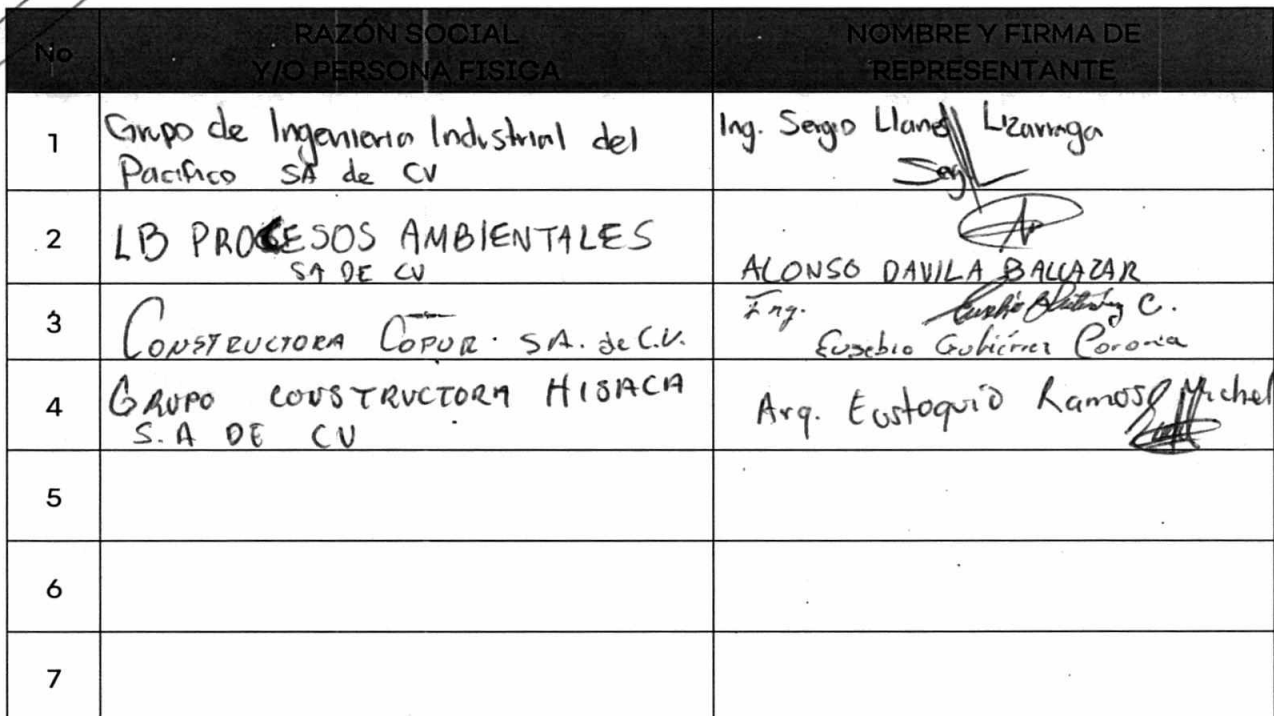 No
RAZÓN SOCIAL
Y/O PERSONA FISICA
NOMBRE Y FIRMA DE
REPRESENTANTE
1
Grupo de Ingenieria Industrial del
Pacifico SA de CV
Ing. Sergio Llanes Lizarraga
2
LB PROCESOS AMBIENTALES
SA DE CV
ALONSO DAVILA BALCAZAR
3
CONSTRUCTORA COPUR. SA. de C.V.
Ing.
Eusebio Gutiérrez Corona
4
GRUPO CONSTRUCTORA HISACA
S.A DE CV
Arq. Eustoquio Ramos Michel
5
6
7